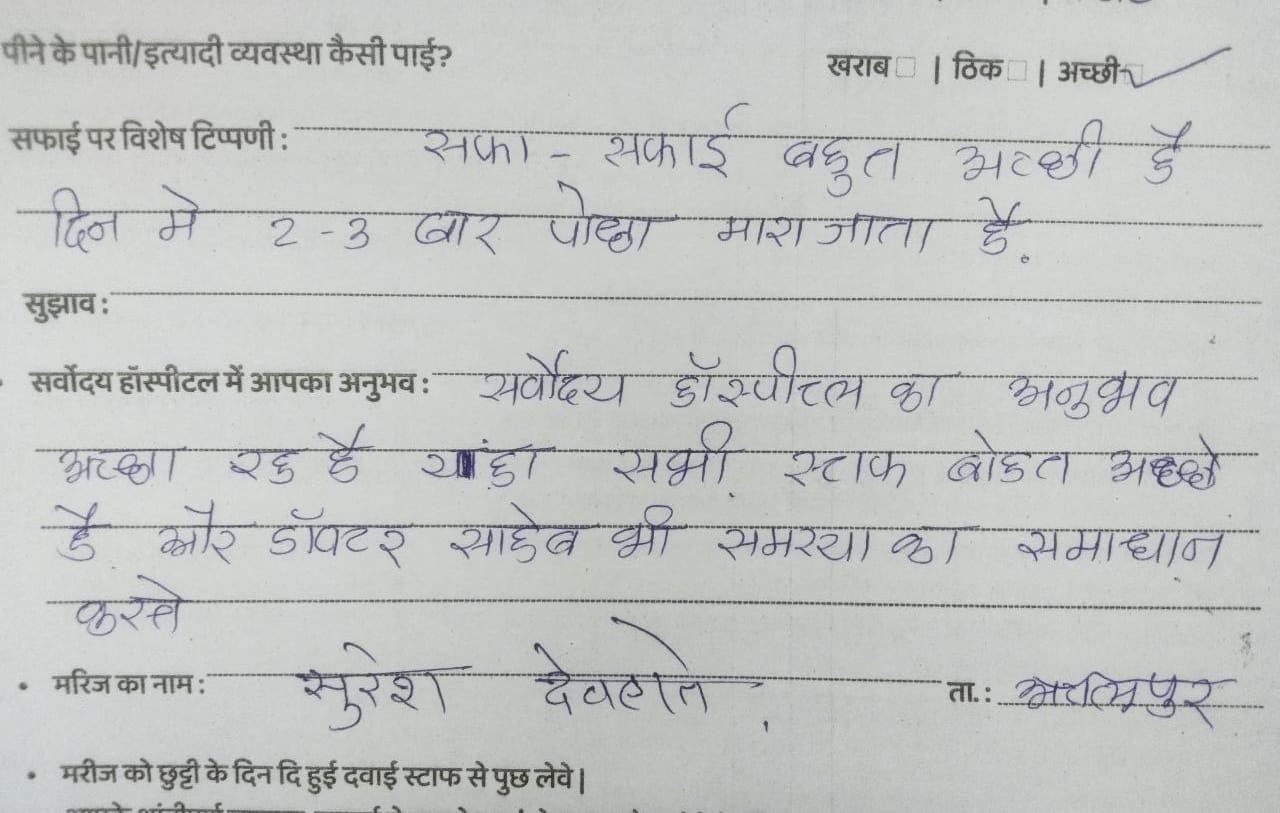 पीने के पानी/इत्यादी व्यवस्था कैसी पाई? खराब □ | ठिक □ | अच्छी ✓
सफाई पर विशेष टिप्पणी : सफा - सफाई बहुत अच्छी है
दिन मे 2-3 बार पोछा मारा जाता है.
सुझाव :
सर्वोदय हॉस्पीटल में आपका अनुभव : सर्वोदय हॉस्पीटल का अनुभव
अच्छा रह है यांहा सभी स्टाफ बोहत अच्छे
है और डॉक्टर साहेब भी समस्या का समाधान
करते
• मरिज का नाम : सुरेश ता. :
• मरीज को छुट्टी के दिन दि हुई दवाई स्टाफ से पुछ लेवे |